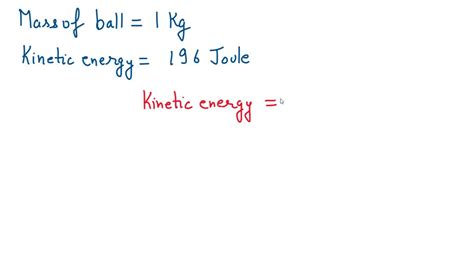 Mass of ball = 1 Kg
Kinetic energy = 196 Joule
Kinetic energy =